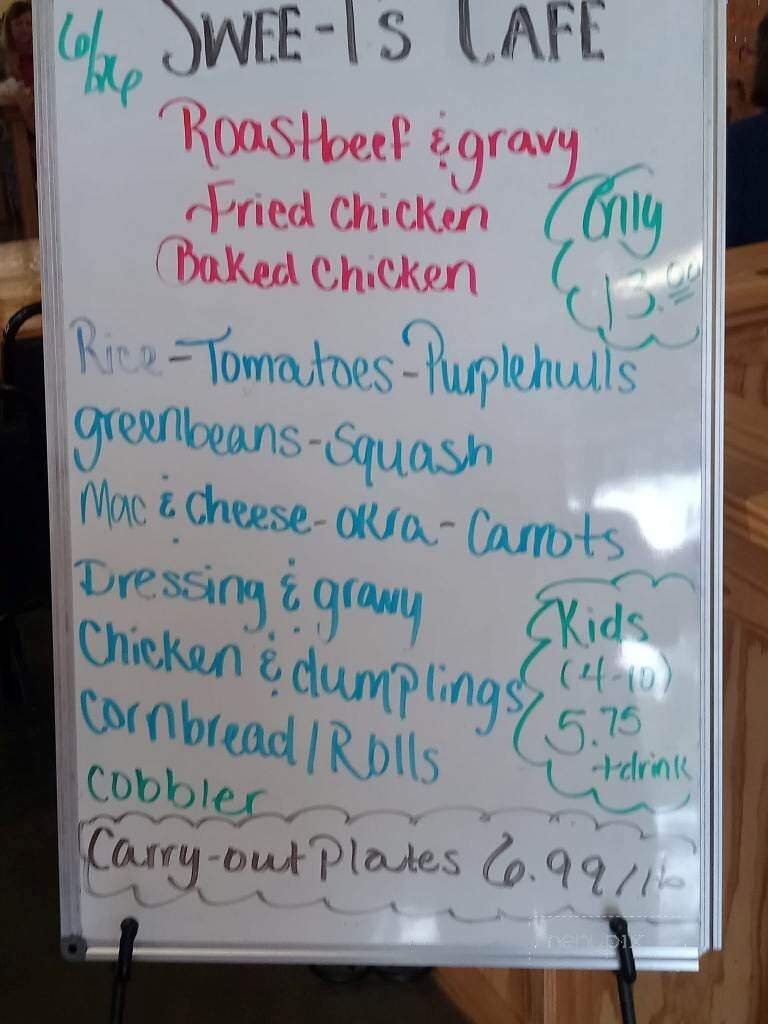 6/26 SWEE-T's CAFE
Roastbeef & gravy
Fried Chicken
Baked Chicken
Only
13.00
Rice - Tomatoes - Purplehulls
greenbeans - Squash
Mac & Cheese - okra - Carrots
Dressing & gravy
Chicken & dumplings
Cornbread / Rolls
Cobbler
Kids
(4-10)
5.75
+drink
Carry-out Plates 6.99/lb
menupix